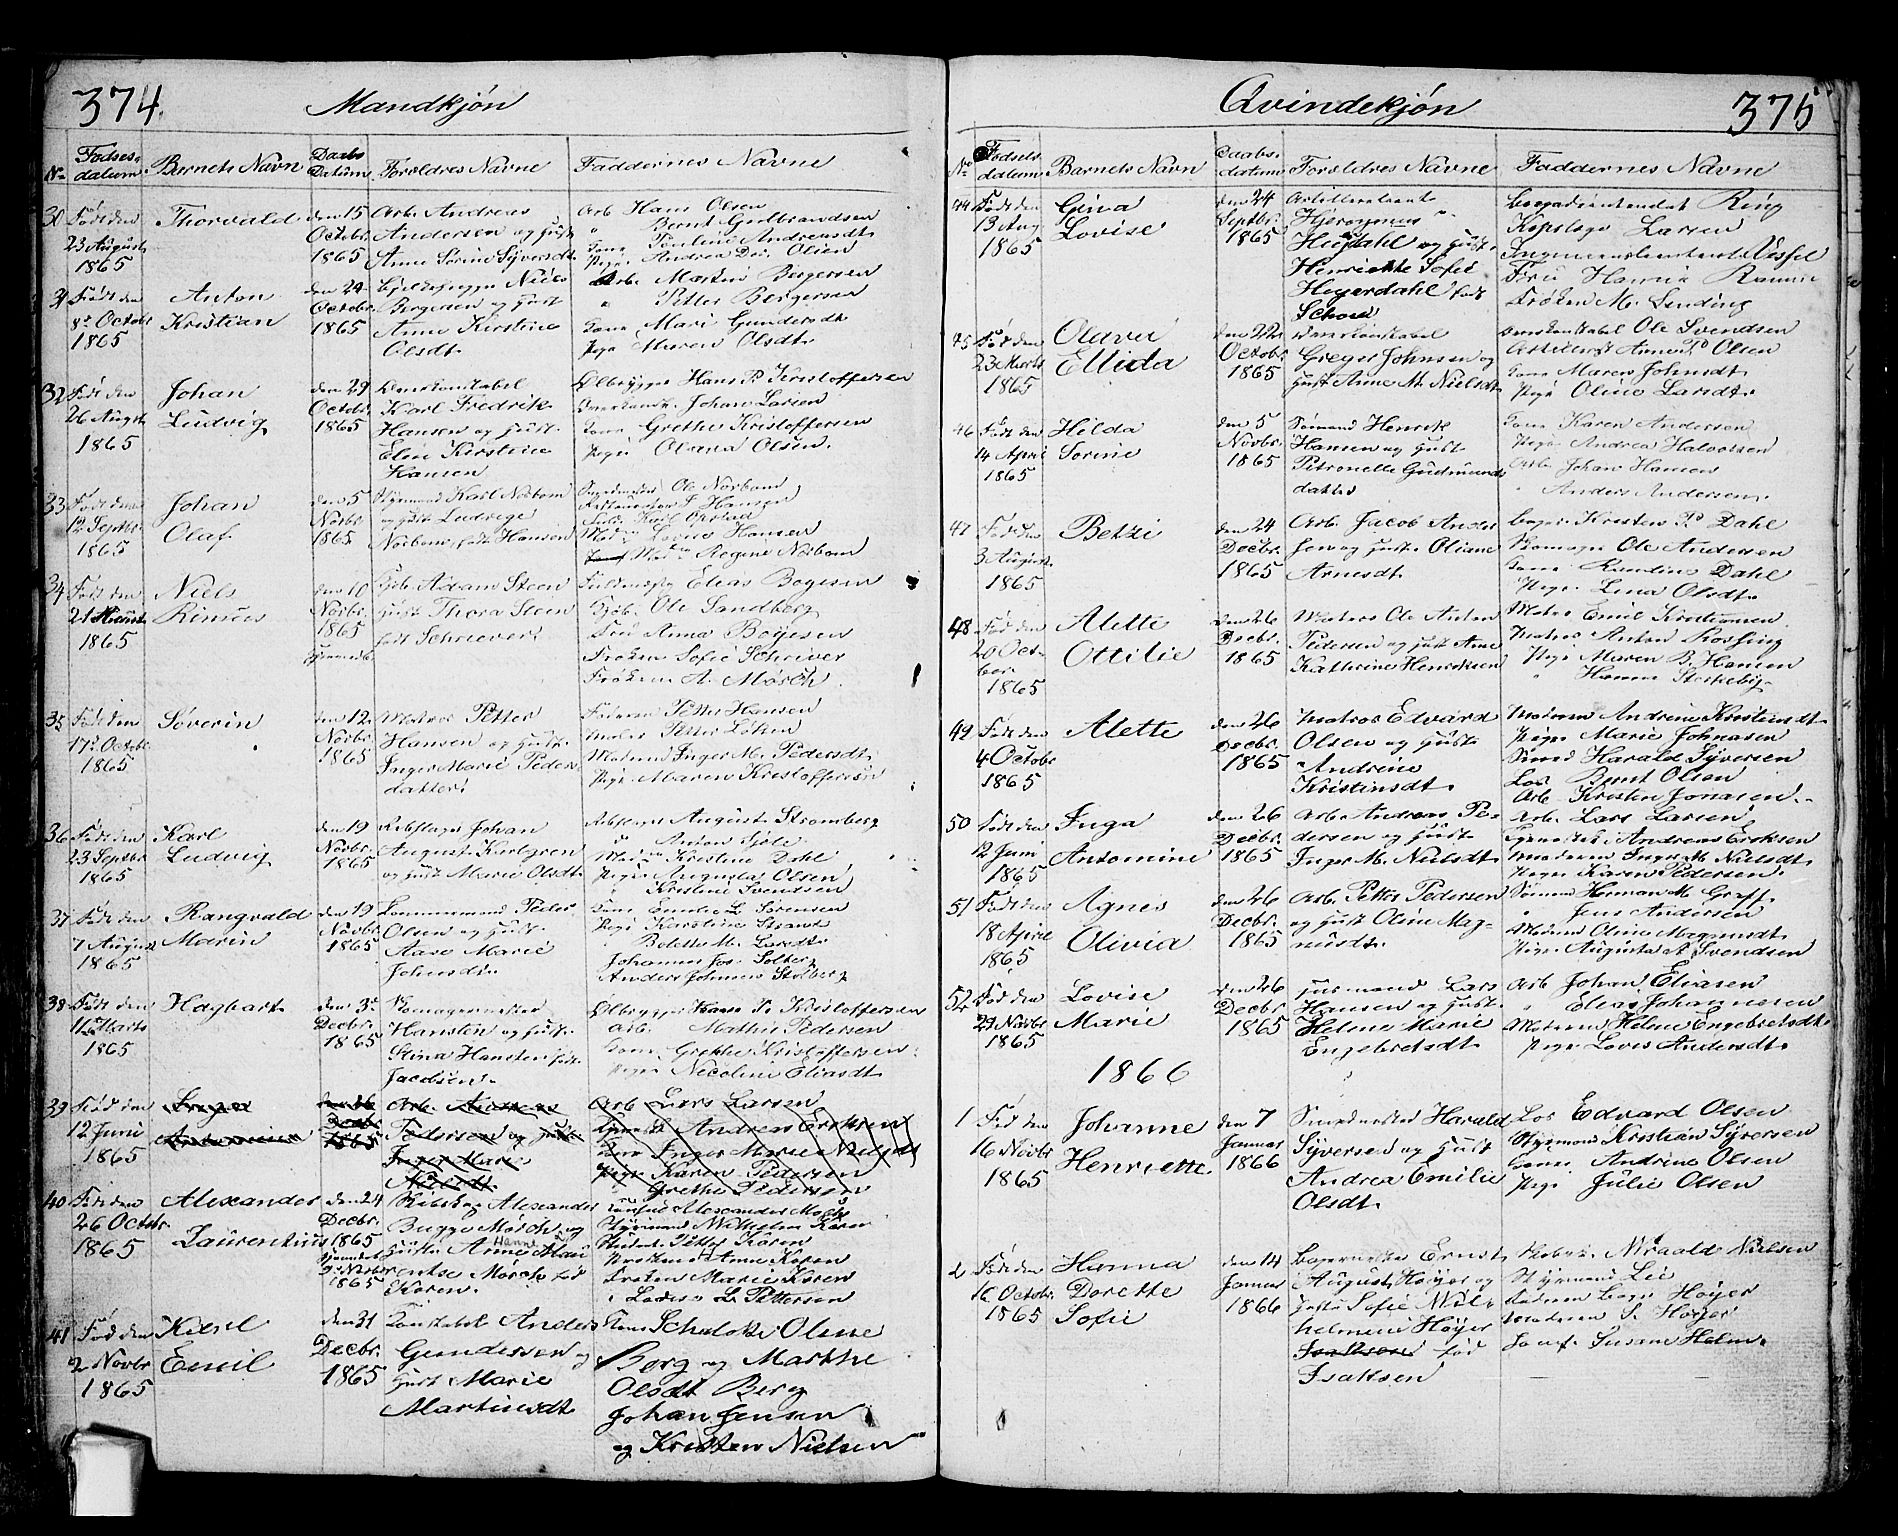 374.
Mandkjön
No
Fødsels-
datum.
Barnets Navn
Daabs
Datum
Forældres Navne
Faddernes Navne
30 Født den
23 August
1865
Thorvald
den 15
Octobr.
1865
Arb. Andreas
Andersen og Hust.
Anne Sørine Syversdt
Arb Hans Olsen
" Bernt Gulbrandsen
Kone Pauline Andreasdt
Pige Andrea Olsen
31 Født den
8de Octobr
1865
Anton
Kristian
den 22
Octobr.
1865
Bergersen og Hust
Anne Kirstine
Olsdt.
Arb. Martin Bergersen
" Petter Bergersen
Kone Mari Gundersdt
Pige Maren Olsdt.
32 Født den
26 August
1865
Johan
Ludvig
den 29
Octobr.
1865
Karl Fredrik
Hansen og Hust.
Eline Kirstine
Hansen
Ølbrygger Hans P. Kristoffersen
Johan Larsen
Kone Grethe Kristoffersen
Pige Olava Olsen.
33 Født den
12 Septbr.
1865
Johan
Olaf
den 5
Novbr.
1865
Styrmand Karl Norbom
og Hust Ludvige
Norbom, født Hansen
Ole Norbom
J. Hansen
Karl Opstad
Lovise Hansen
Regine Norbom
34 Født den
21 August
1865
Niels
Rinius
den 10
Novbr.
1865
Adam Steen
Hust Thora Steen
født Schriever.
Elias Bogesen
Ole Sandberg
Fru Anna Boyesen
Frøken Sofie Schriver
Frøken A. Mørch.
35 Født den
17de Octobr.
1865
Søverin
den 12
Novbr.
1865
Matros Petter
Hansen og Hust.
Inger Marie Peders
datter.
Petter Hansen
Petter Løken
Madam Inger M. Pedersdt
Pige Maren Kristoffersen
36 Født den
23 Septbr
1865
Karl
Ludvig
den 19
Novbr.
1865
Rebslager Johan
August Karlgren
og Hust Marie Olsdt.
Rebslager August Strømberg
" Anton Sjöle
Mad Kristine Dahl
Pige Augusta Olsen
" Kristine Svendsen
37 Født den
7 August
1865
Rangvald
Marin
den 19
Novbr.
1865
Peder
Olsen og Hust.
Aase Marie
Johnsdt.
Kone Emilie L. Sørensen
Pige Karoline Strand
Bolette M. Larsdt.
Johannes Jos. Solberg
Anders Johnsen Stolberg
38 Født den
11 Marts
1865
Hagbart
den 3de
Decbr.
1865
Skomagermester
Hansten og Hust.
Stina Hansten født
Jacobsen.
Ølbrygger Hans P. Kristoffersen
Arb. Mathis Pedersen
Kone Grethe Kristoffersen
Pige Nicoline Eliasdt
39 Født den
12 Juni
1865
Inga
Antomine
den 26
Decbr.
1865
Arb. Andreas
Pedersen og Hust
Inger Marie
Nielsdt.
Arb Lars Larsen
Andreas Eriksen
Kone Inger Marie Nielsdt
Pige Karen Pedersen
" Grethe Pedersen
40 Født den
26 Octobr
1865
Alexander
Laurentius
den 24
Decbr.
1865
Hjemmedøbt
9de Novbr
1865
Alexander
Bugge Mørch og
Hustru Anne Hanne Mari
entse Mørch født
Kören.
Alexander Mørch
Styrmand Wilhelm Kören
Student Petter Kören
Anne Kören
Frøken Marie Kören
Lovise L. Pettersen
41 Født den
2 Novbr
1865
Kitil
Emil
den 31
Decbr.
1865
Konstabel Anders
Gundersen og
Hust Marie
Martinsdt.
Olsine
Borg og Marthe
Olsdt Berg
Johan Jensen
og Kristen Nielsen
Qvindekjön
375
No
Fødsels
datum.
Barnets Navn
Daabs-
datum
Forældres Navne
Faddernes Navne
44 Født den
13 Aug
1865
Gina
Lovise
den 24
Septbr.
1865
Hjeronymus
Heyerdahl og Hust.
Henriette Sofie
Heyerdahl født
Schou
Ring
Larsen
Vessel
Fru Hanna
Frøken M. Linding
45 Født den
23 Marts
1865
Olava
Ellida
den 22
Octobr.
1865
Greger Johnsen og
Hust Anne M. Nielsdt
Ole Svendsen
Arne P. Olsen
Kone Maren Johnsdt.
Pige Oline Larsdt.
46 Født den
14 April
1865
Hilda
Sorine
den 5
Novbr.
1865
Sømand Henrik
Hansen og Hust
Petronelle Gudmunds
datter
Kone Karen Andersen
Pige Andrea Halvorsen
Arb. Johan Hansen
" Anders Andersen.
47 Født den
3 August
1865
Betzi
den 24
Decbr.
1865
Arb. Jacob Ander
sen og Hust. Oliane
Arnesdt.
Kristen P. Dahl
Skomager Ole Andersen
Kone Karoline Dahl
Pige Lina Olsdt.
48 Født den
20 Octo-
ber
1865
Alette
Ottilie
den 26
Decbr.
1865
Matros Ole Anton
Pedersen og Hust Anne
Kathrine Henriksen
Matros Emil Kristiansen
Matros Anton Rossing
Pige Maren B. Hansen
" Hanna Storkeby
49 Født den
4 Octobr
1865
Alette
den 26
Decbr.
1865
Matros Edvard
Olsen og Hust
Andrine
Kristinsdt.
Madam Andrine Kristinsdt.
Pige Marie Johnasen
Smed Harald Syversen
Los Bernt Olsen
Arb. Kristen Jonasen.
50 Født den
12 Juni
1865
Inga
Antomine
den 26
Decbr.
1865
Arb. Andreas Pe-
dersen og Hust
Inger M. Nielsdt.
Arb. Lars Larsen
Andreas Eriksen
Madam Inger M. Nielsdt
Pige Karen Pedersen.
51 Født den
18 April
1865
Agnes
Olivia
den 26
Decbr.
1865
Arb. Petter Pedersen
og Hust Oline Mag-
nusdt.
Sømand Herman M. Graff
" Jens Andersen
Madam Oline Magnusdt.
Pige Augusta A. Svendsen
52 Født den
29 Novbr
1865
Lovise
Marie
den 26
Decbr.
1865
Husmand Lars
Hansen og Hust.
Helene Marie
Engebretsdt.
Arb Johan Eliasen
" Elias Johannesen
Madam Helene Engebretsdt.
Pige Lovis Andersdt.
1866
1 Født den
16 Novbr.
1865
Johanne
Henriette
den 7
Januar
1866
Smedmester Harald
Syversen og Hust
Andrea Emilie
Olsdt.
Los Edvard Olsen
Styrmand Kristian Syversen
Kone Andrine Olsen
Pige Julie Olsen
2 Født den
16 Octobr.
1865
Hanna
Dorette
Sofie
den 14
Januar
1866
Bagermester Ernst
August Höyer og
Hustru Sofie Wil-
helmine Höyer
født
Isaksen
Nielsen
Styrmand Lie
Madam Höyer
Madam S. Höyer
Jomf. Susane Holm.